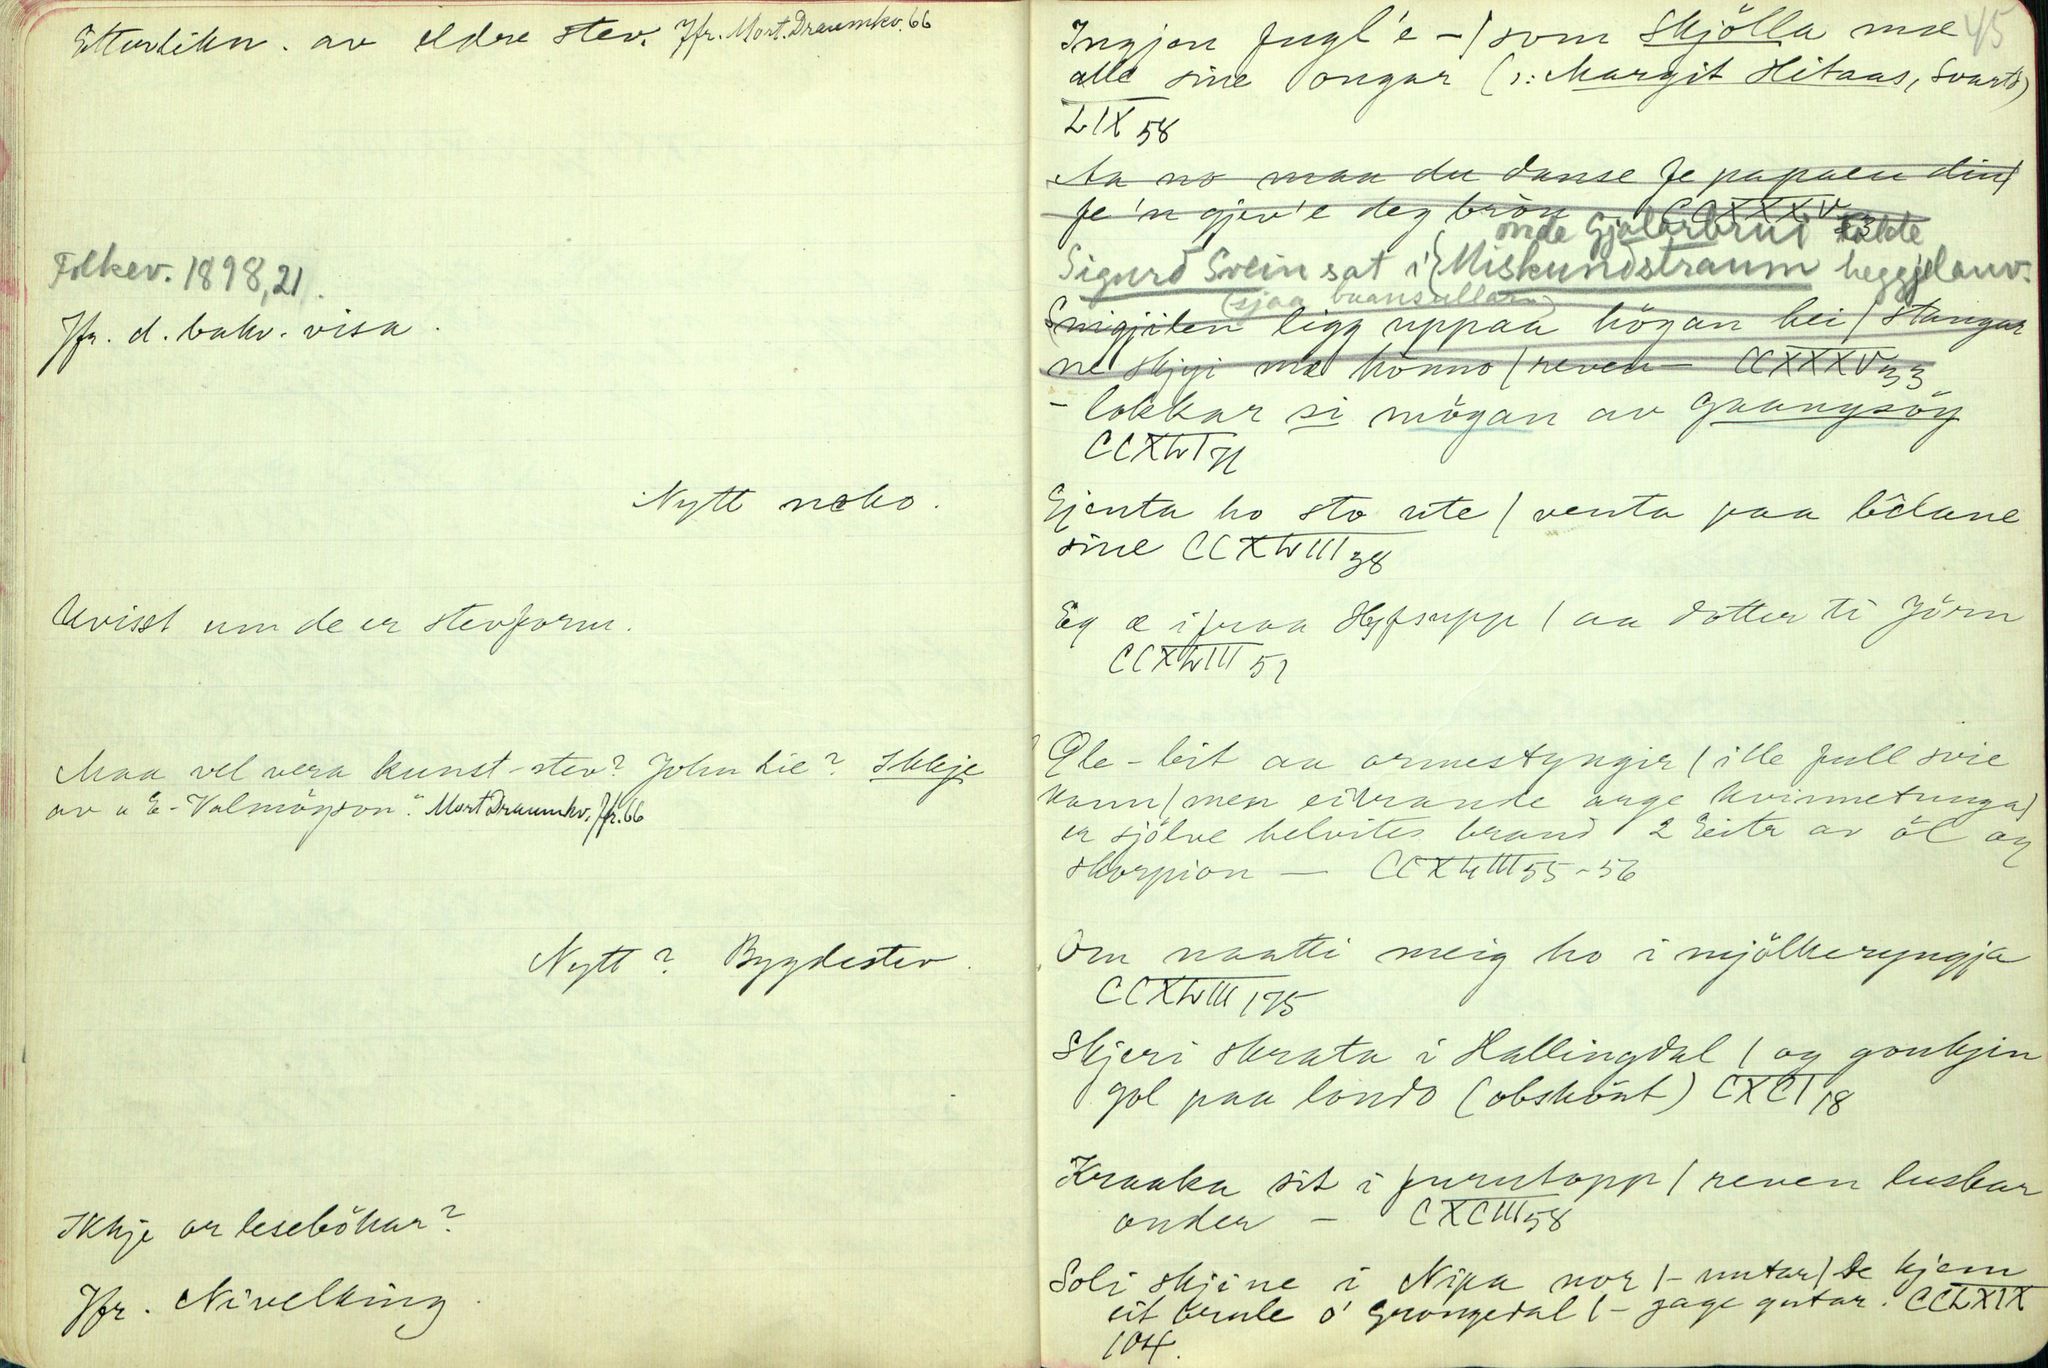 Etterlikn. av eldre stev. Jfr. Mort. Draumkv. 66
Folkev. 1898, 21.
Jfr. d. bakv. visa.
Nytt noko.
Uvisst um de er stevform.
Maa vel vera kunst-stev? John Lie? Ikkje
av "E-Valmögson." Mort Draumkv. Jfr. 66
Nytt? Bygdestev.
Ikkje or lesebökar?
Jfr. Nivelking.
45
Ingjen fugl'e - / som skjölla mæ
alle sine ongar (ɔ: Margit Hitaas, Svartd)
LIX 58
Aa no maa du danse fe papaen din /
fe 'n gjev'e deg brön CCXXXV 23
onde Gjalarbrui tokte
Sigurd Svein sat i Miskundstraum heggjelauv.
(sjaa baansullara)
ligg uppaa högan hei / stangar
ne skjyi mæ hönno / reven - CCXXXV 33
- lokkar si mögan av gaangsöy
CCXLVI 71
Gjenta ho sto ute / venta paa bêlane
sine CCXLVIII 38
Eg æ ifraa Hyfsupp / aa dotter ti Jörn
CCXLVIII 51
Qle-bit aa ormestyngir / ille full svie
kann / men eitrande arge kvinnetunga /
er sjölve helvites brand 2 Eitr av öl og
skorpion - CCXLVIII 55-56
Om naatti meig ho i mjölkeryngja
CCXLVIII 175
Skjeri skrata i Hallingdal / og goukjin
gol paa londo (obskönt) CXCI 18
Kraaka sit i furutopp / reven luskar
onder - CXCIII 58
Soli skjine i Nipa nor / - nutar / De kjem
eit brule o' Grongedal / - gage gutar. CCLXIX
104.